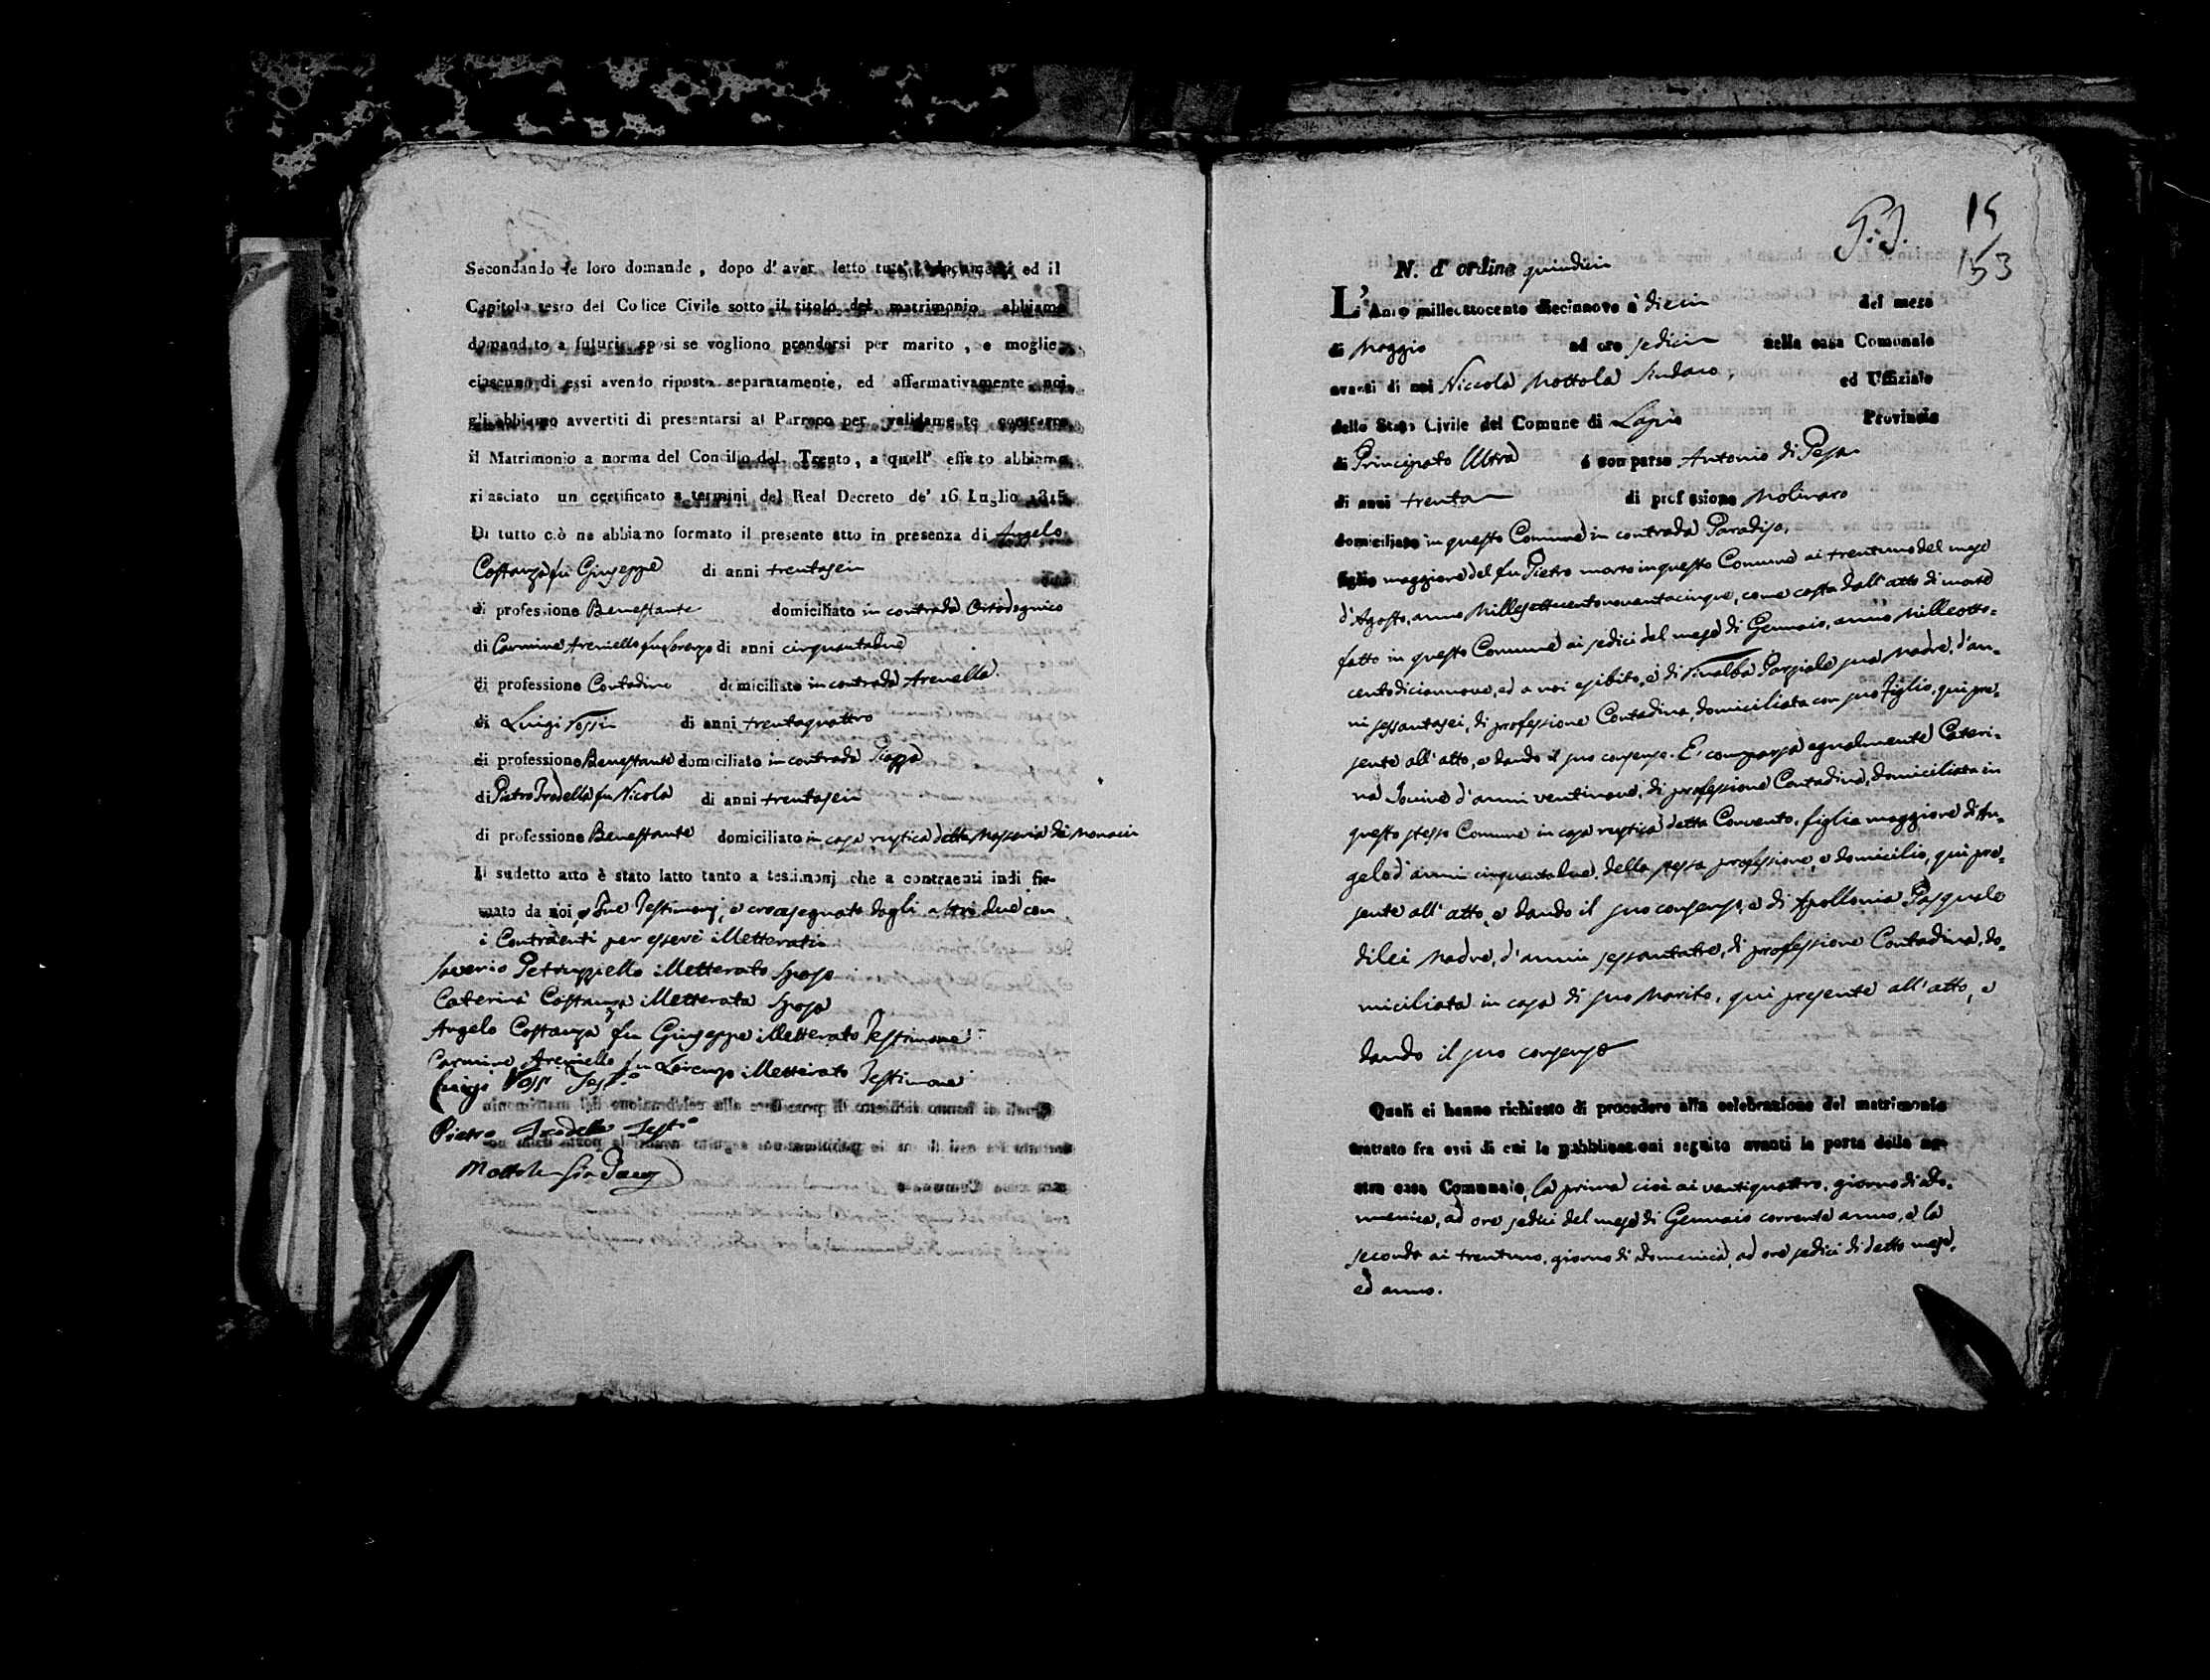 Secondando le loro domande , dopo d' aver letto tutt' i documenti ed il
Capitolo sesto del Codice Civile sotto il titolo del matrimonio abbiamo
domandato a futuri sposi se vogliono prendersi per marito , e moglie
ciascuno di essi avendo risposto separatamente, ed affermativamente noi
gli abbiamo avvertiti di presentarsi al Parroco per validamente contrarre
il Matrimonio a norma del Concilio del Trento , a quell' effetto abbiamo
rilasciato un certificato a termini del Real Decreto de' 16 Luglio 1815
Di tutto ciò ne abbiamo formato il presente atto in presenza di Angelo
Costanza fu Giuseppe di anni trentasei
di professione Benestante domiciliato in contrada
di Carmine Areniello fu Lorenzo di anni cinquantadue
di professione Contadino domiciliato in contrada Arenella
di Luigi Vossi di anni trentaquattro
di professione Benestante domiciliato in contrada Piazza
di Pietro Fredella fu Nicola di anni trentasei
di professione Benestante domiciliato in casa rustica detta Masseria de' Monaci
Il sudetto atto è stato latto tanto a testimonj che a contraenti indi fir-
mato da noi, e due Testimonj, e crocesegnato dagli altri due con
i Contraenti per essere illetterati
Saverio Petruzziello illetterato Sposo
Caterina Costanza illetterata Sposa
Angelo Costanza fu Giuseppe illetterato Testimone
Carmine Areniello fu Lorenzo illetterato Testimone
Luigi Vossi Test.e
Pietro Fredella Test.e
Mottola Sindaco
15
153
N. d' ordine quindici
L' Anno millecottocento diecinnove à dieci del mese
di Maggio ad ore sedici nella casa Comunale
avanti di noi Niccola Mottola Sindaco, ed Uffiziale
dello Stato Civile del Comune di Lapio Provincia
di Principato Ultra è comparso Antonio di Pesa
di anni trenta di professione Molinaro
domiciliato in questo Comune in contrada Paradiso,
figlio maggiore del fu Pietro morto in questo Comune ai trentuno del mese
d'Agosto, anno Millesettecentonovantacinque, come costa dall'atto di morte
fatto in questo Comune ai sedici del mese di Gennaio, anno Milleotto=
centodiciannove, ed a noi esibito, e di Sinalba Parziale sua Madre, d'an=
ni sessantasei, di professione Contadina, domiciliata con suo Figlio, qui pre=
sente all'atto, e dando il suo consenso. E' comparsa egualmente Cateri=
na Iovine d'anni ventinove, di professione Contadina, domiciliata in
questo stesso Comune in casa rustica detta Convento, figlia maggiore di An=
gelo d'anni cinquantadue, della stessa professione, e domicilio, qui pre=
sente all'atto, e dando il suo consenso, e di Apollonia Pasquale
di lei Madre, d'anni sessantatre, di professione Contadina, do=
miciliata in casa di suo Marito, qui presente all'atto, e
dando il suo consenso
Quali ci hanno richiesto di procedere alla celebrazione del matrimonio
contratto fra essi di cui le pubblicazioni seguito avanti la porta della no-
stra casa Comunale, la prima cioè ai ventiquattro, giorno di do=
menica, ad ore sedici del mese di Gennaio corrente anno, e la
seconda ai trentuno, giorno di domenica, ad ore sedici di detto mese,
ed anno.